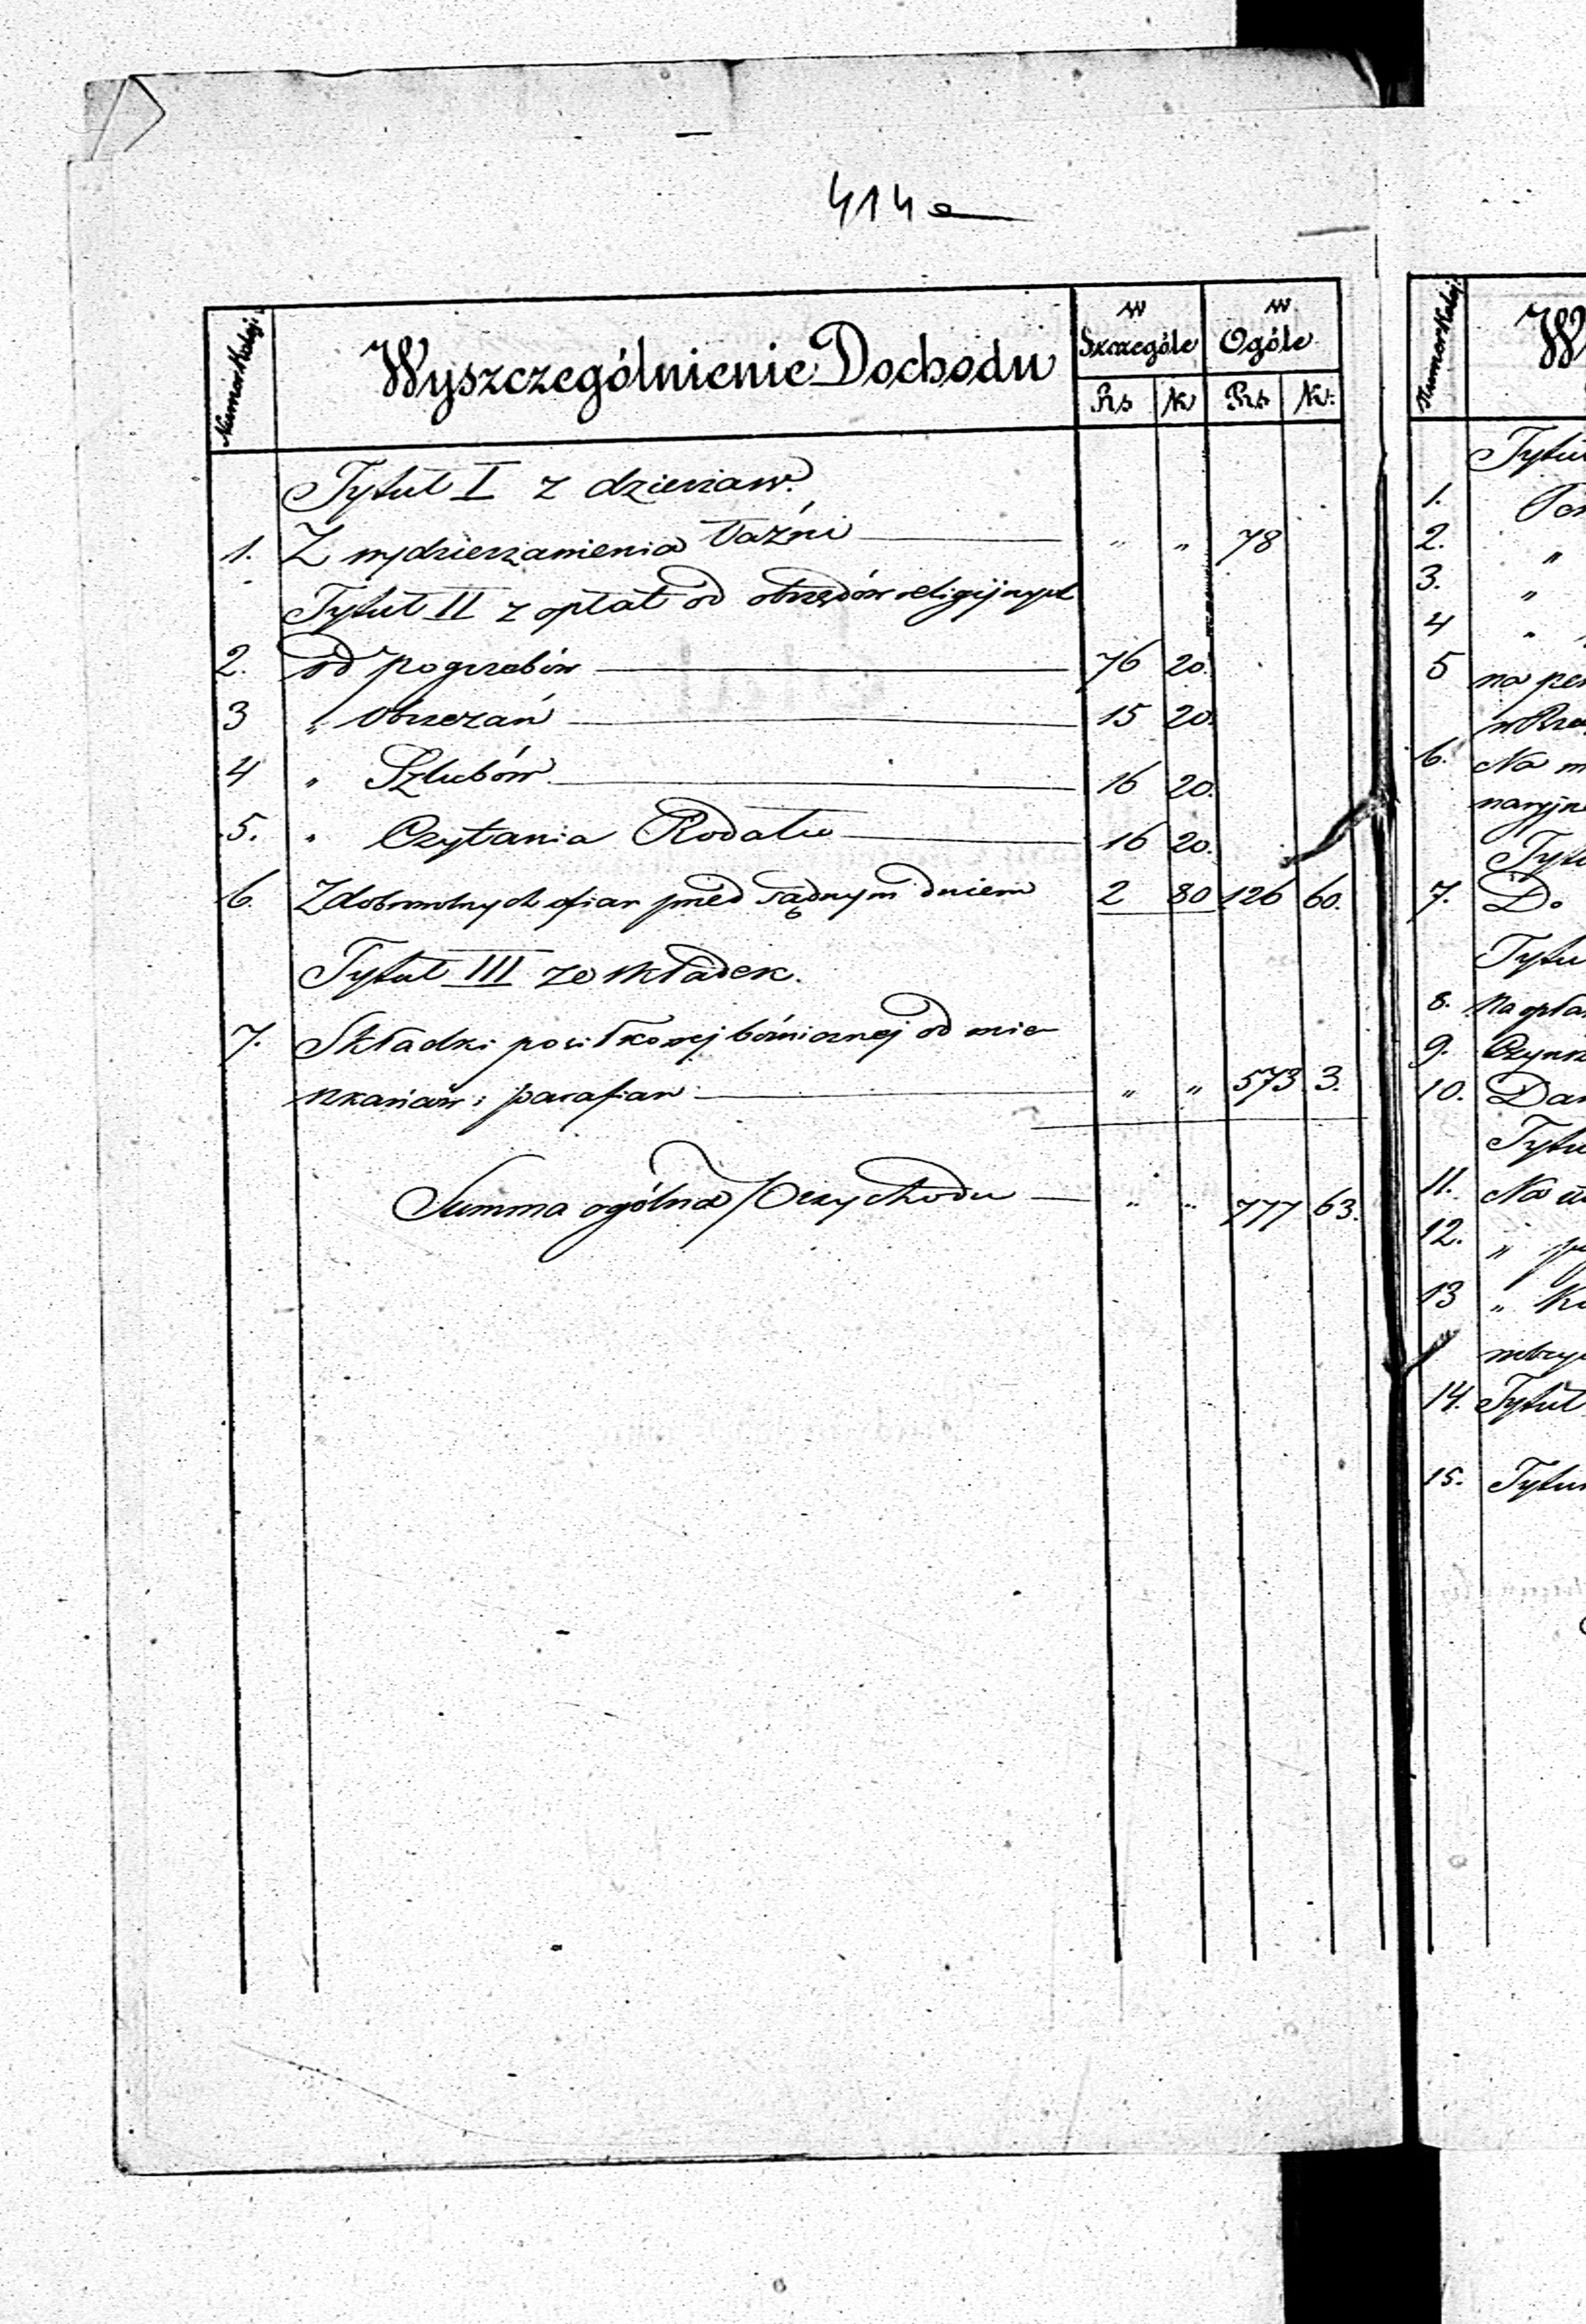 414a
Numer Kolej. Wyszczególnienie Dochodu w Szczególe w Ogóle
Rs K Rs K:
Tytuł I z dzierżaw.
1. Z wydzierżawienia Łaźni „ „ 78
Tytuł II z opłat od obrzędów religijnych
2. od pogrzebów 76 20.
3 „ Obrzezań 15 20.
4 „ Szlubów 16 20.
5. „ Czytania Rodału 16 20.
6. Z dobrowolnych ofiar przed sądnym dniem 2 80 126 60.
Tytuł III ze składek.
7. Składki posiłkowej bóżnicznej od mie-
szkańców i parafian „ „ 573 3.
Summa ogólna Przychodu „ „ 777 63.
Numer Kolej. W
Tytu
1.
2. „
3. „
4 „
5 na
6. Na
Tytu
7. Do
Tytu
8. Na opła
9. Czynsz
10. Dan
Tytu
11. Na
12. „
13 „
14. Tytuł
15. Tytu